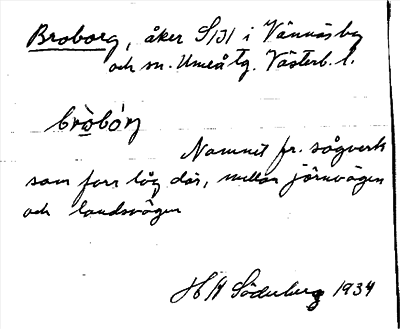 Broborg, åker S131 i Vännäsby
och sn. Umeå tg. Västerb. l.
bròbórj
Namnet fr. sågverk
som förr låg där, mellan järnvägen
och landsvägen
H Söderberg 1934